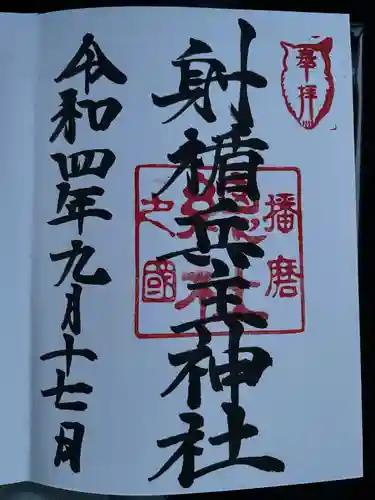 奉拝
射楯兵主神社
播磨
総社
之國
令和四年九月十七日